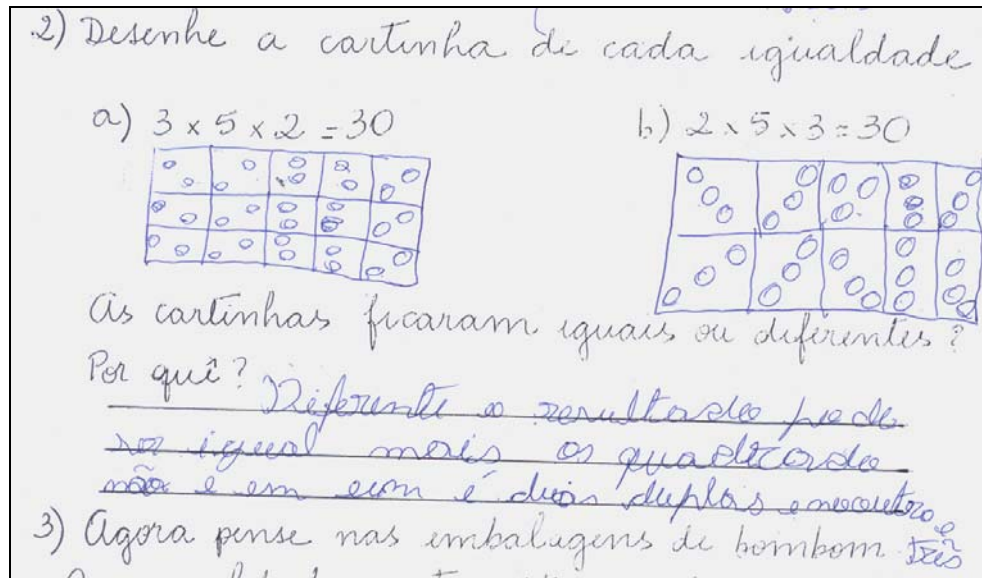 2) Desenhe a cartinha de cada igualdade
a) 3 x 5 x 2 = 30 b) 2 x 5 x 3 = 30
As cartinhas ficaram iguais ou diferentes?
Por quê? Diferente o resultado pode
ser igual mais os quadicado
não e em eum é duas duplas e nocoutro e
três
3) Agora pense nas embalagens de bombom